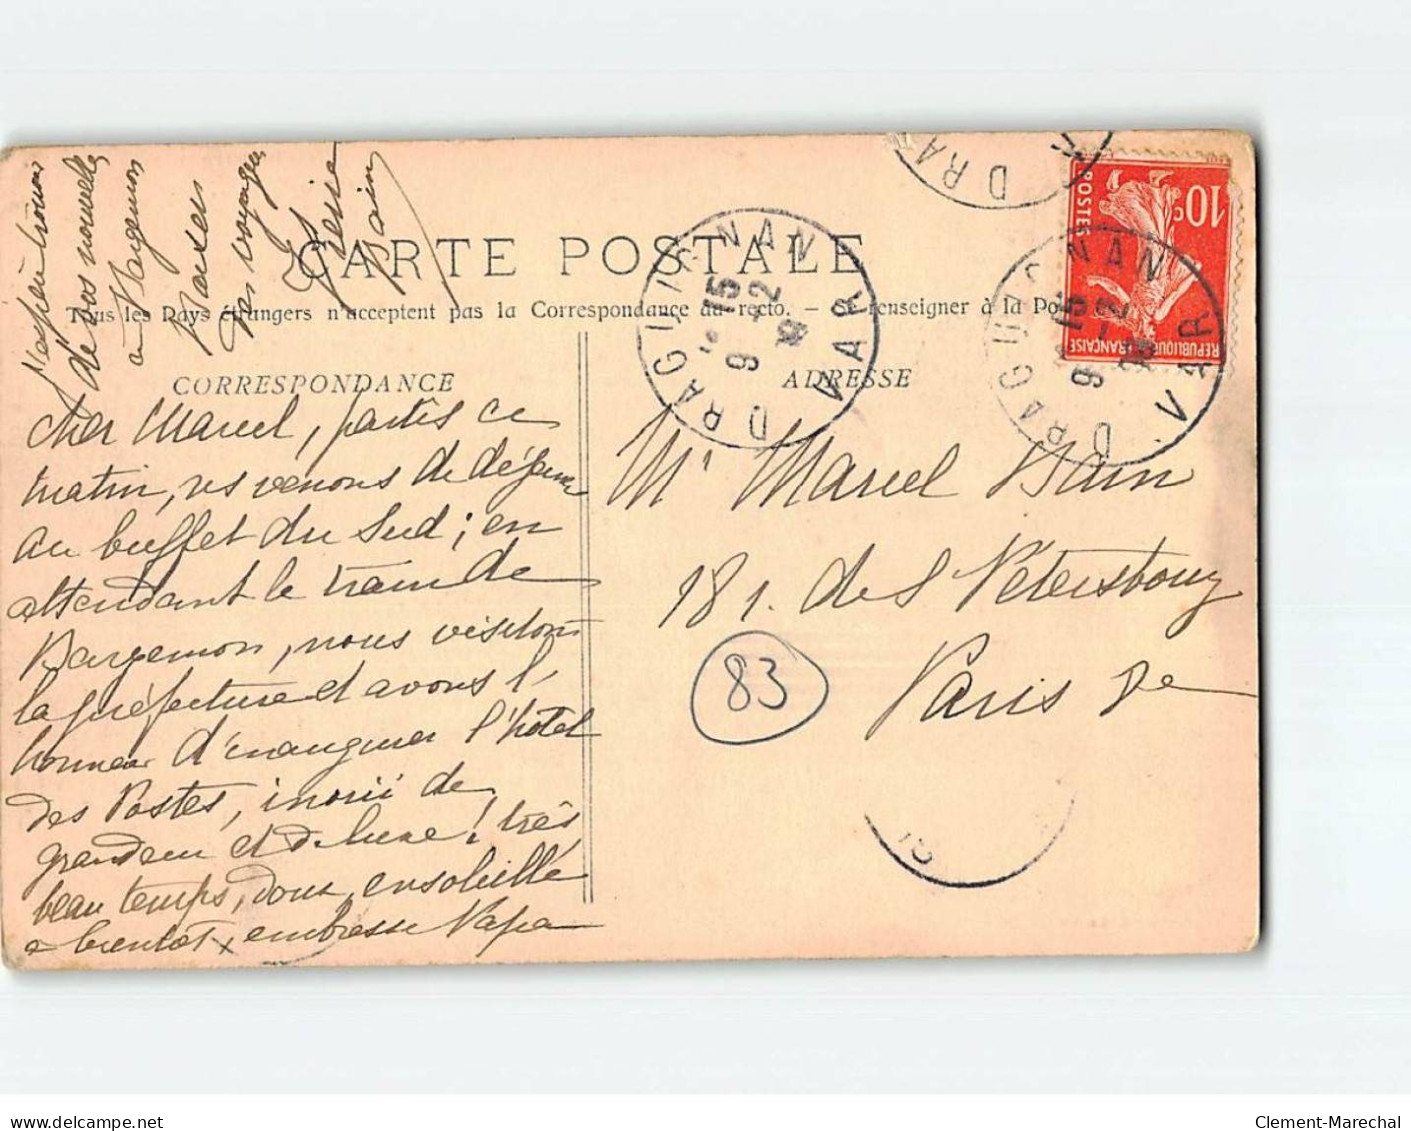 J'espère trouver
de vos nouvelles
à Bargemon
Baisers
des voyageurs
Bain
CARTE POSTALE
Tous les Pays étrangers n'acceptent pas la Correspondance au recto. — Se renseigner à la Po
CORRESPONDANCE
cher Marcel, partis ce
matin, ns venons de déjeuner
au buffet du Sud ; en
attendant le train de
Bargemon, nous visitons
la préfecture et avons l'
honneur d'inaugurer l'hôtel
des Postes, inouï de
grandeur et de luxe ! très
beau temps, doux, ensoleillé
à bientôt, embrasse Papa
ADRESSE
Mr Marcel Bain
18 r. de St Pétersbourg
Paris 8e
83
DRAGUIGNAN
15
9 -2
VAR
DRAGUIGNAN
15
9 -2
VAR
DRA
10c
POSTES
REPUBLIQUE FRANÇAISE
Clement-Marechal
delcampe.net